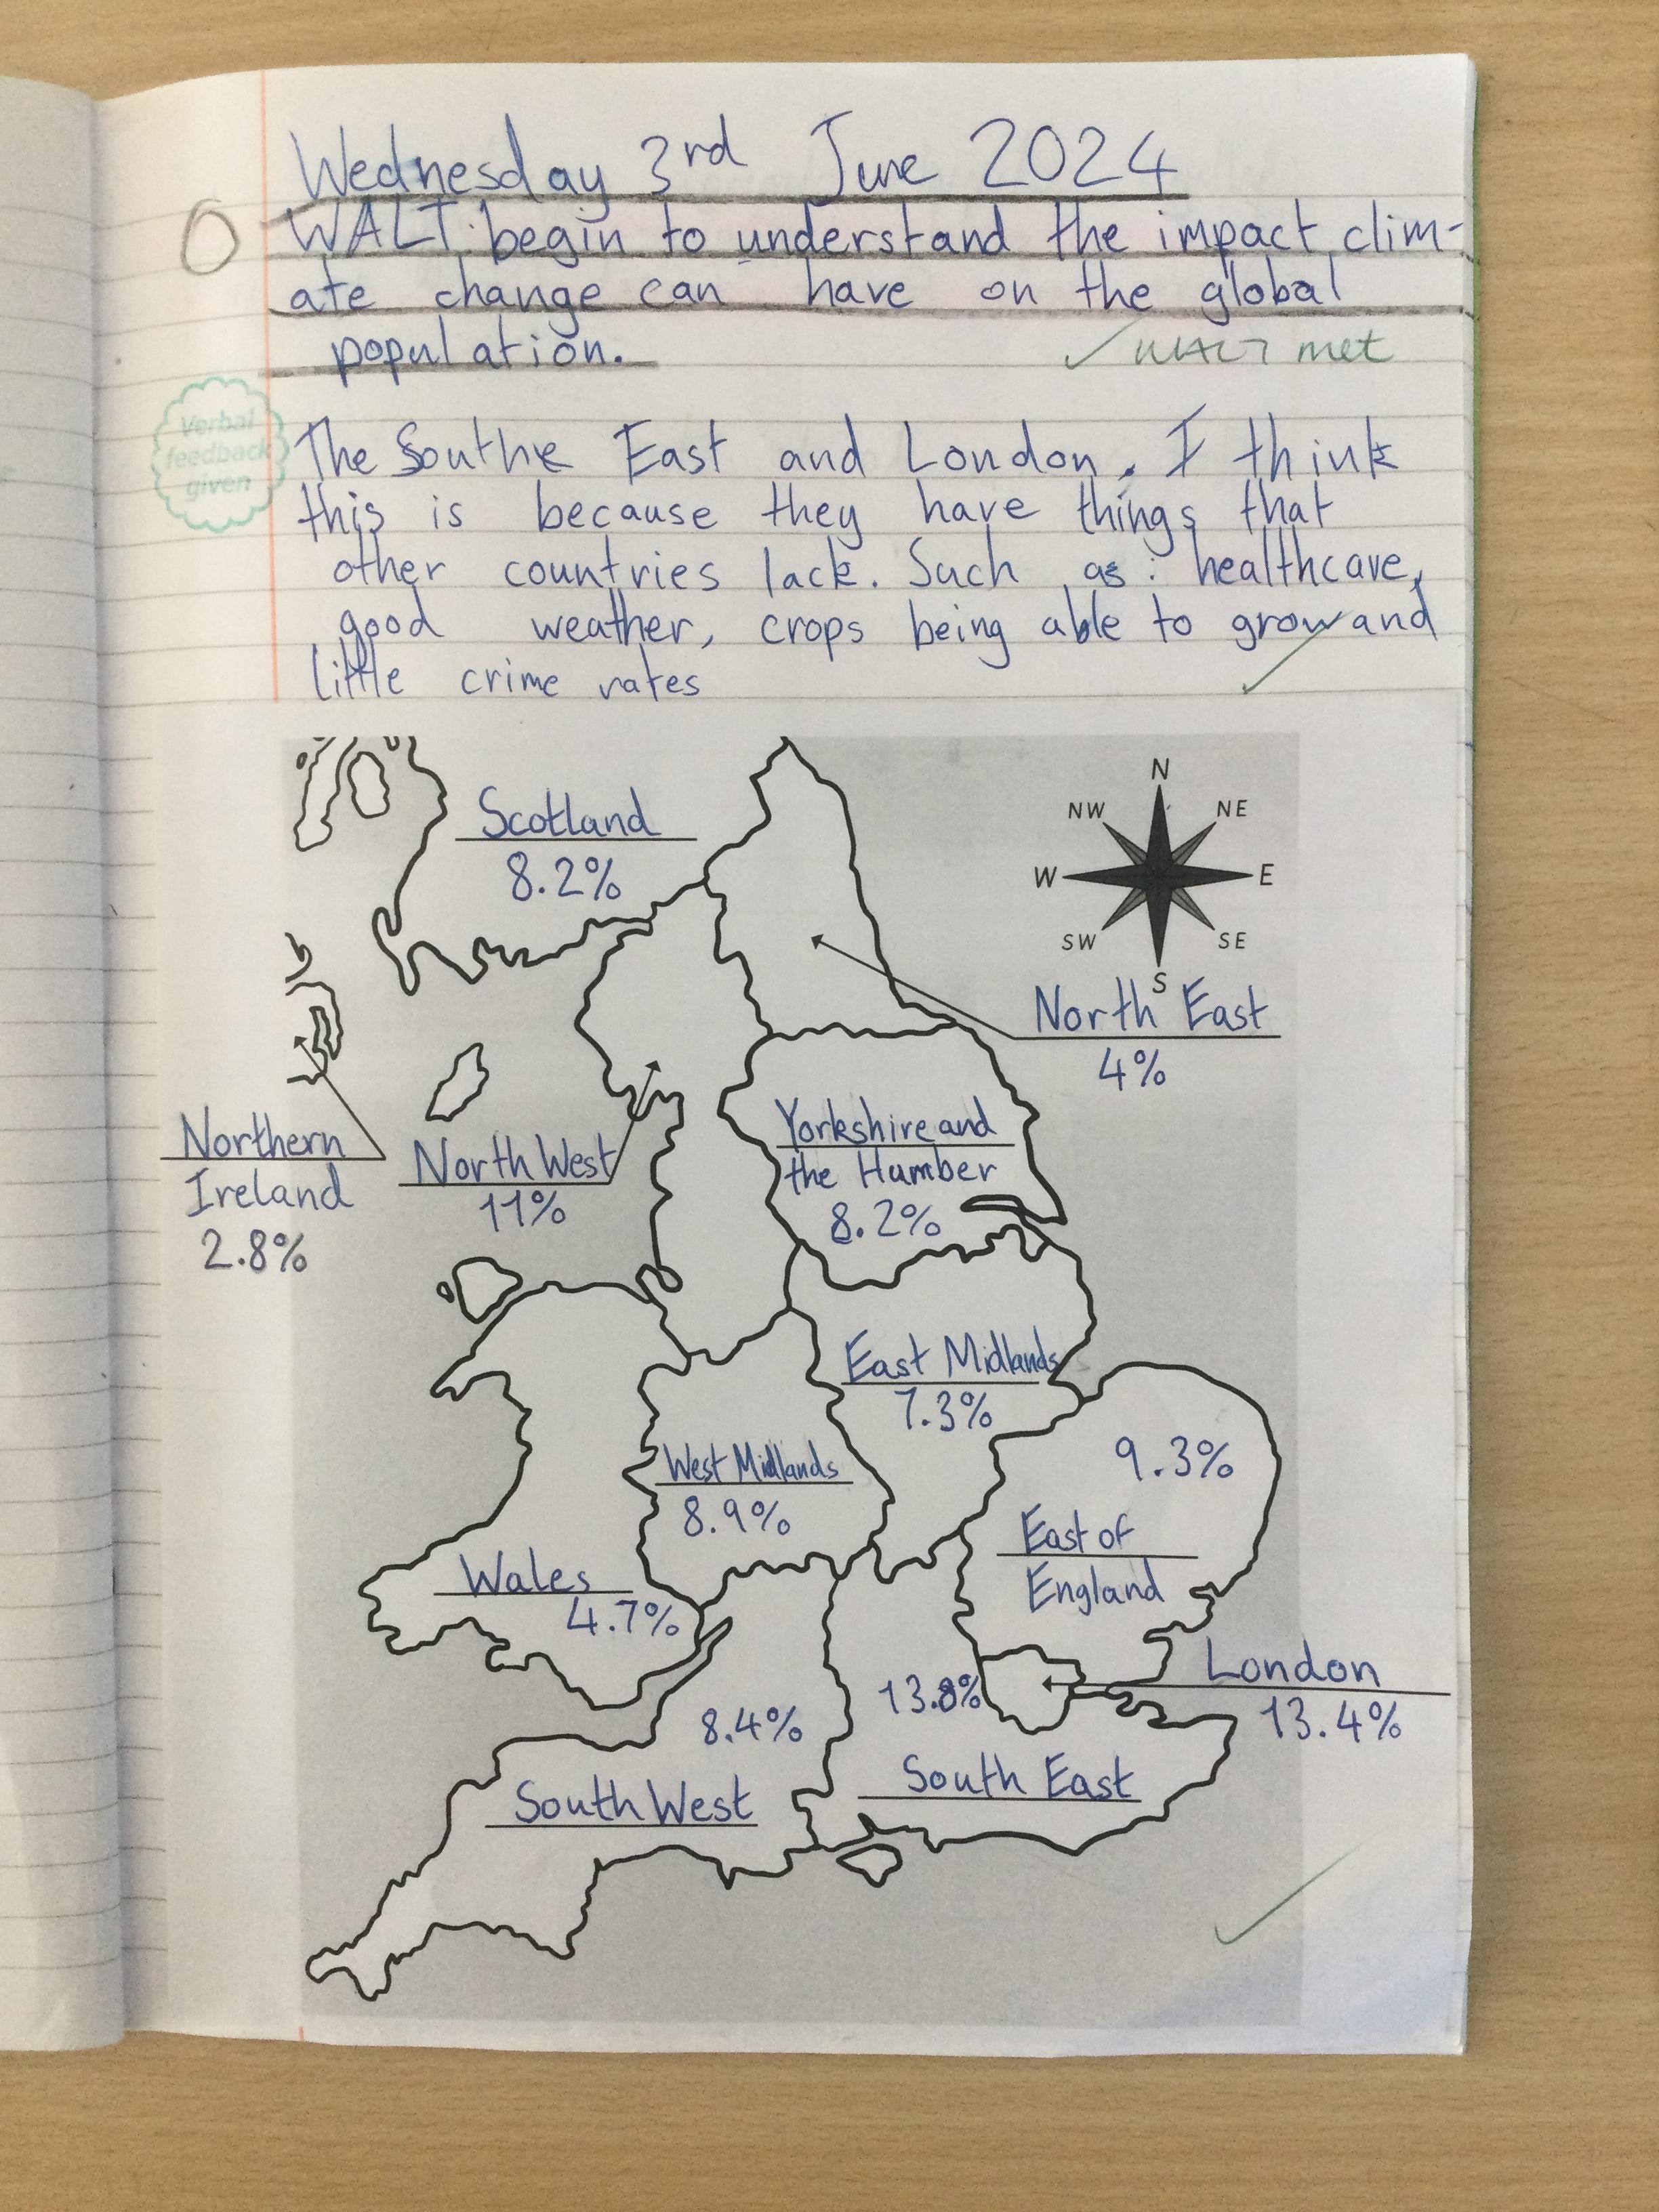 Wednesday 3rd June 2024
O
WALT: begin to understand the impact clim-
ate change can have on the global
population.
✓ WALT met
Verbal
feedback
given
The Southe East and London. I think
this is because they have things that
other countries lack. Such as: healthcare,
good weather, crops being able to grow and
little crime rates
Scotland
8.2%
N
NW
NE
W
E
SW
SE
S
North East
4%
Northern
Ireland
2.8%
North West
11%
Yorkshire and
the Humber
8.2%
East Midlands
7.3%
West Midlands
8.9%
9.3%
East of
England
Wales
4.7%
London
13.4%
8.4%
South West
13.8%
South East